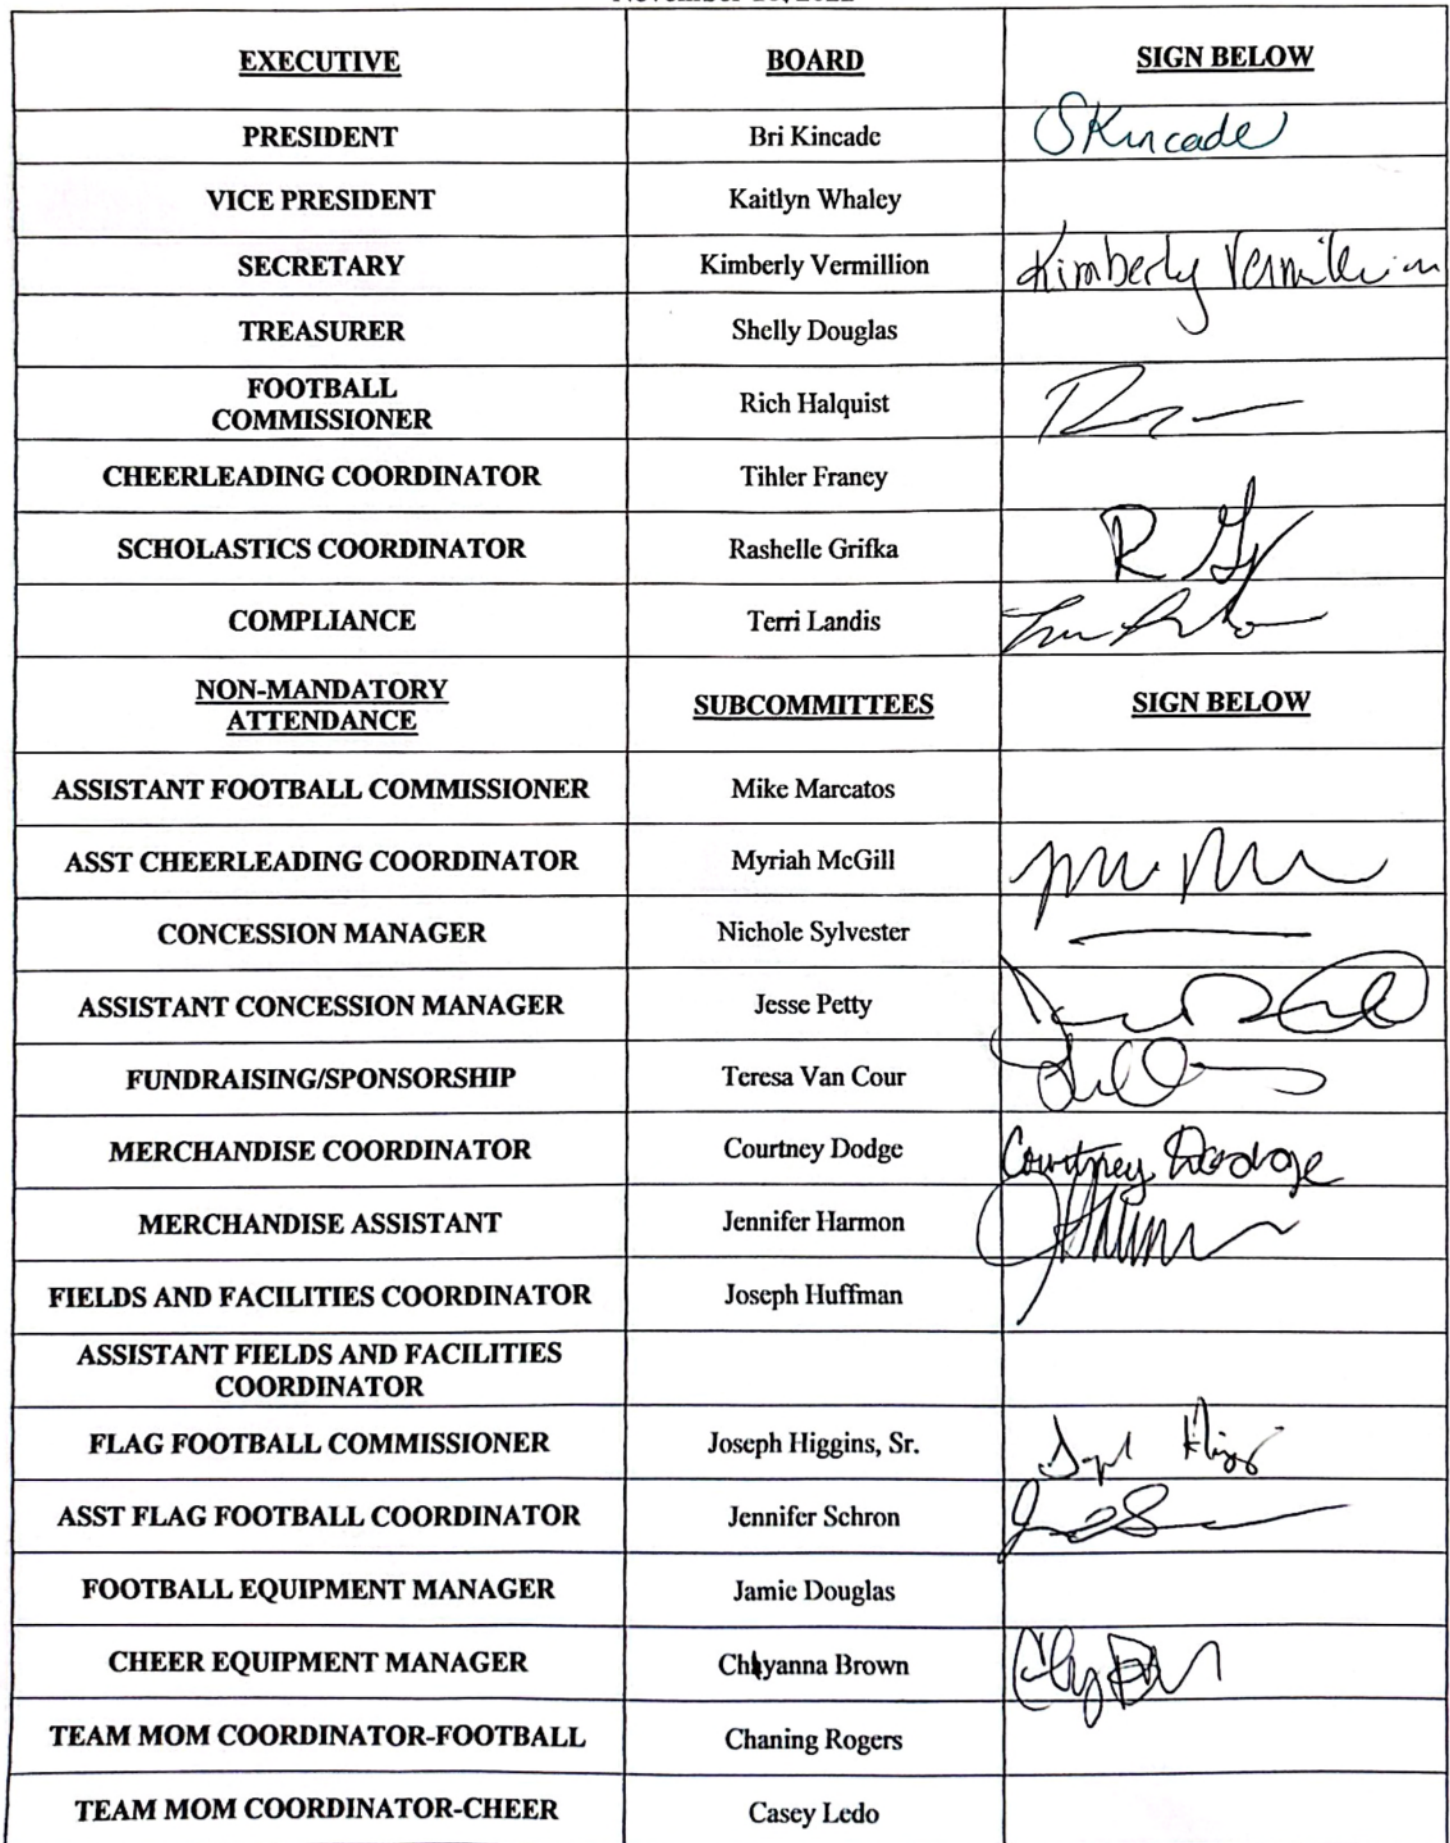 EXECUTIVE BOARD SIGN BELOW
PRESIDENT Bri Kincade SKincade
VICE PRESIDENT Kaitlyn Whaley
SECRETARY Kimberly Vermillion Kimberly Vermillion
TREASURER Shelly Douglas
FOOTBALL
COMMISSIONER Rich Halquist
CHEERLEADING COORDINATOR Tihler Franey
SCHOLASTICS COORDINATOR Rashelle Grifka R
COMPLIANCE Terri Landis
NON-MANDATORY
ATTENDANCE SUBCOMMITTEES SIGN BELOW
ASSISTANT FOOTBALL COMMISSIONER Mike Marcatos
ASST CHEERLEADING COORDINATOR Myriah McGill
CONCESSION MANAGER Nichole Sylvester
ASSISTANT CONCESSION MANAGER Jesse Petty
FUNDRAISING/SPONSORSHIP Teresa Van Cour
MERCHANDISE COORDINATOR Courtney Dodge Courtney Dodge
MERCHANDISE ASSISTANT Jennifer Harmon
FIELDS AND FACILITIES COORDINATOR Joseph Huffman
ASSISTANT FIELDS AND FACILITIES
COORDINATOR
FLAG FOOTBALL COMMISSIONER Joseph Higgins, Sr.
ASST FLAG FOOTBALL COORDINATOR Jennifer Schron
FOOTBALL EQUIPMENT MANAGER Jamie Douglas
CHEER EQUIPMENT MANAGER Chyanna Brown
TEAM MOM COORDINATOR-FOOTBALL Chaning Rogers
TEAM MOM COORDINATOR-CHEER Casey Ledo